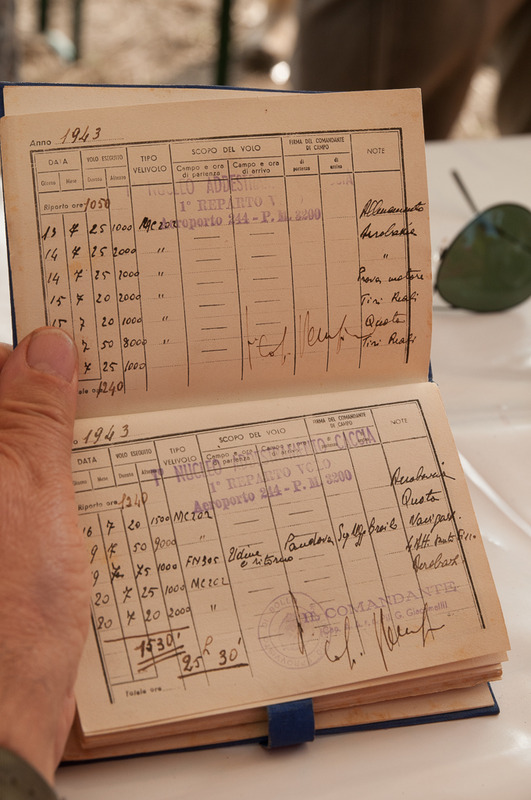 Anno 1943
DATA VOLO ESEGUITO TIPO VELIVOLO SCOPO DEL VOLO FIRMA DEL COMANDANTE DI CAMPO NOTE
Giorno Mese Durata Altezza Campo e ora di partenza Campo e ora di arrivo di partenza di arrivo
NUCLEO ADDESTR
1° REPARTO V
Aeroporto 244 - P. M. 3200
Riporto ore 1050
13 7 25 1000 MC202 Allenamento
14 7 25 2000 " Acrobazia
14 7 25 2000 " "
15 7 20 2000 " Prova motore
15 7 20 1000 " Tiri Reali
7 50 8000 " Quota
7 25 1000 Tiri Reali
ale ore 1240
o 1943
DATA VOLO ESEGUITO TIPO VELIVOLO SCOPO DEL VOLO FIRMA DEL COMANDANTE DI CAMPO NOTE
Giorno Mese Durata Altezza Campo e ora di partenza
1° NUCLEO CACCIA
1° REPARTO VOLO
Aeroporto 244 - P. M. 3200
Riporto ore 1240
16 7 20 1500 MC202 Acrobazia
9 7 50 9000 " Quota
9 7 75 1000 FN305 Udine e ritorno Pandova
20 7 25 1000 MC202
20 7 20 2000 " Acrobaz.
1530'
25h 30'
IL COMANDANTE
Totale ore